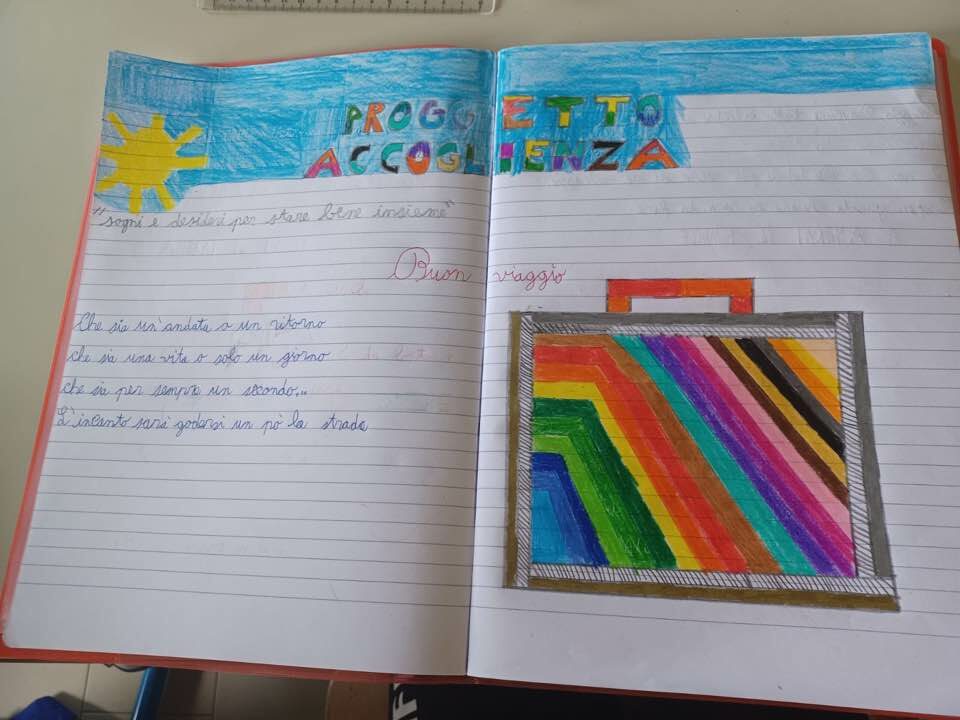 PROGGETTO
ACCOGLIENZA
"sogni e desideri per stare bene insieme"
Buon viaggio
Che sia un'andata o un ritorno
che sia una vita o solo un giorno
che sia per sempre un secondo...
L'incanto sarà godersi un pò la strada